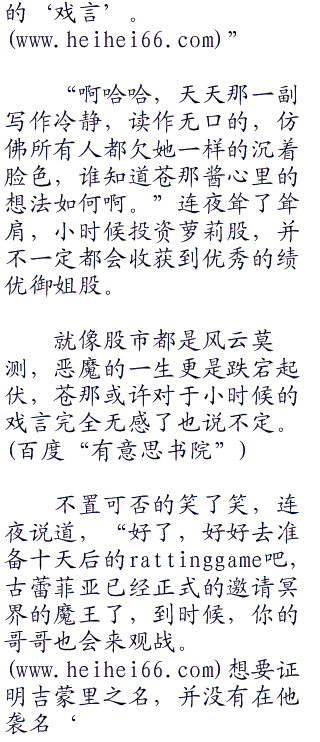 的‘戏言’。
(www.heihei66.com)”
“啊哈哈，天天那一副
写作冷静，读作无口的，仿
佛所有人都欠她一样的沉着
脸色，谁知道苍那酱心里的
想法如何啊。”连夜耸了耸
肩，小时候投资萝莉股，并
不一定都会收获到优秀的绩
优御姐股。
就像股市都是风云莫
测，恶魔的一生更是跌宕起
伏，苍那或许对于小时候的
戏言完全无感了也说不定。
(百度“有意思书院”)
不置可否的笑了笑，连
夜说道，“好了，好好去准
备十天后的rattinggame吧，
古蕾菲亚已经正式的邀请冥
界的魔王了，到时候，你的
哥哥也会来观战。
(www.heihei66.com)想要证
明吉蒙里之名，并没有在他
袭名‘